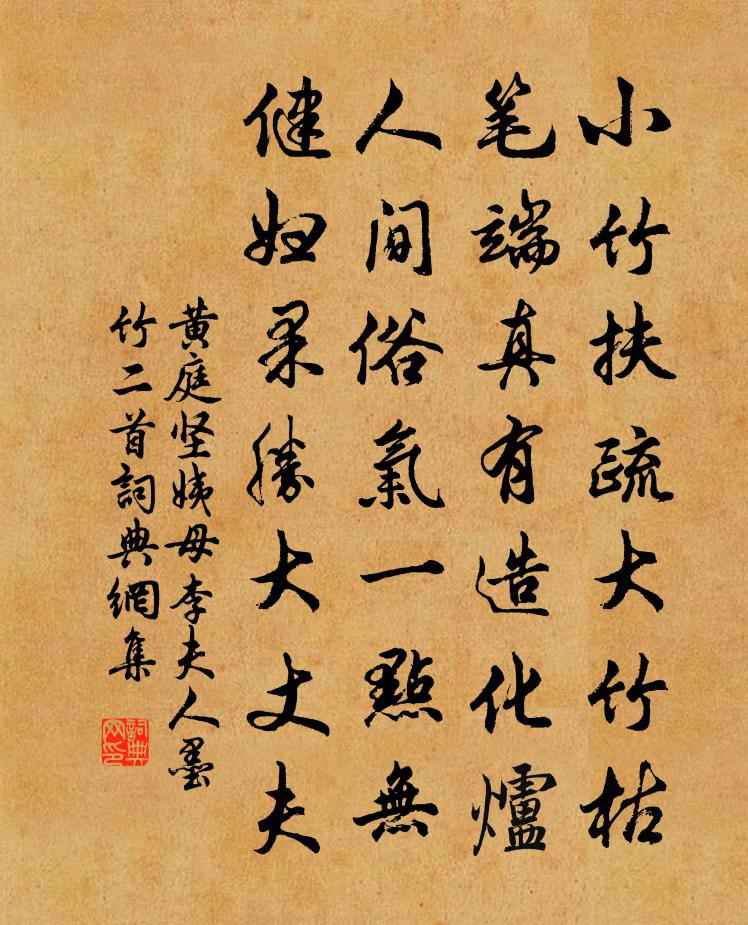 小竹扶疏大竹枯
笔端真有造化爐
人间俗氣一點無
健妇果勝大丈夫
黄庭坚姨母李夫人墨
竹二首詞典網集
詞典
网印